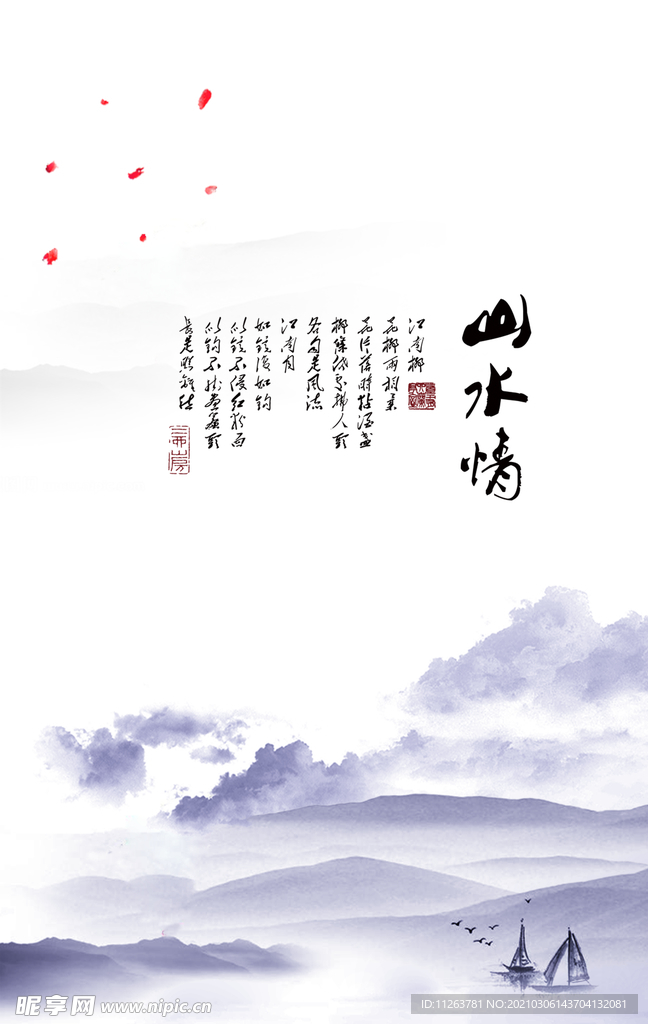 山水情
江南柳
花柳两相柔
花片落时黏酒盏
柳条低处拂人头
各自是风流
江南月
如镜复如钩
似镜不侵红粉面
似钩不挂画帘头
长是照离愁
昵享网 www.nipic.cn
ID:11263781 NO:20210306143704132081